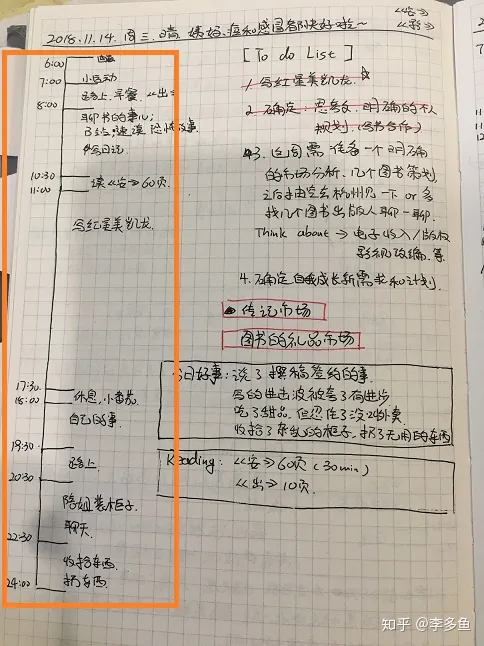 2018.11.14. 周三 晴 姨妈、痘和感冒都快好啦~
6:00
7:00 小运动
8:00 路上. 早餐. 《出》
聊书的事儿;
今日记.
10:30
11:00 读《容》60页.
写红星美凯龙
17:30
18:00 休息, 小番茄
自己的事
19:30
20:30 路上
陪姐装柜子.
聊天
22:30
收拾东西.
扔东西.
24:00
[To do List]
1. 写红星美凯龙.
2. 确定:
规划. (写书合作)
3. 这周需 准备一个明确
的市场分析. 几个图书策划,
之后抽空去杭州见一下 or 多
找几个图书出版人聊一聊.
Think about → 电子收入/版权
影视改编. 等
4. 确定自我成长新需求和计划.
传记市场
图书的礼品市场
今日好事: 说了撰稿签约的事.
吃了甜品, 但忍住了没叫外卖.
收拾了杂乱的柜子, 扔了无用的东西
Reading: 《容》60页 (30min)
《出》10页.
知乎 @李多鱼